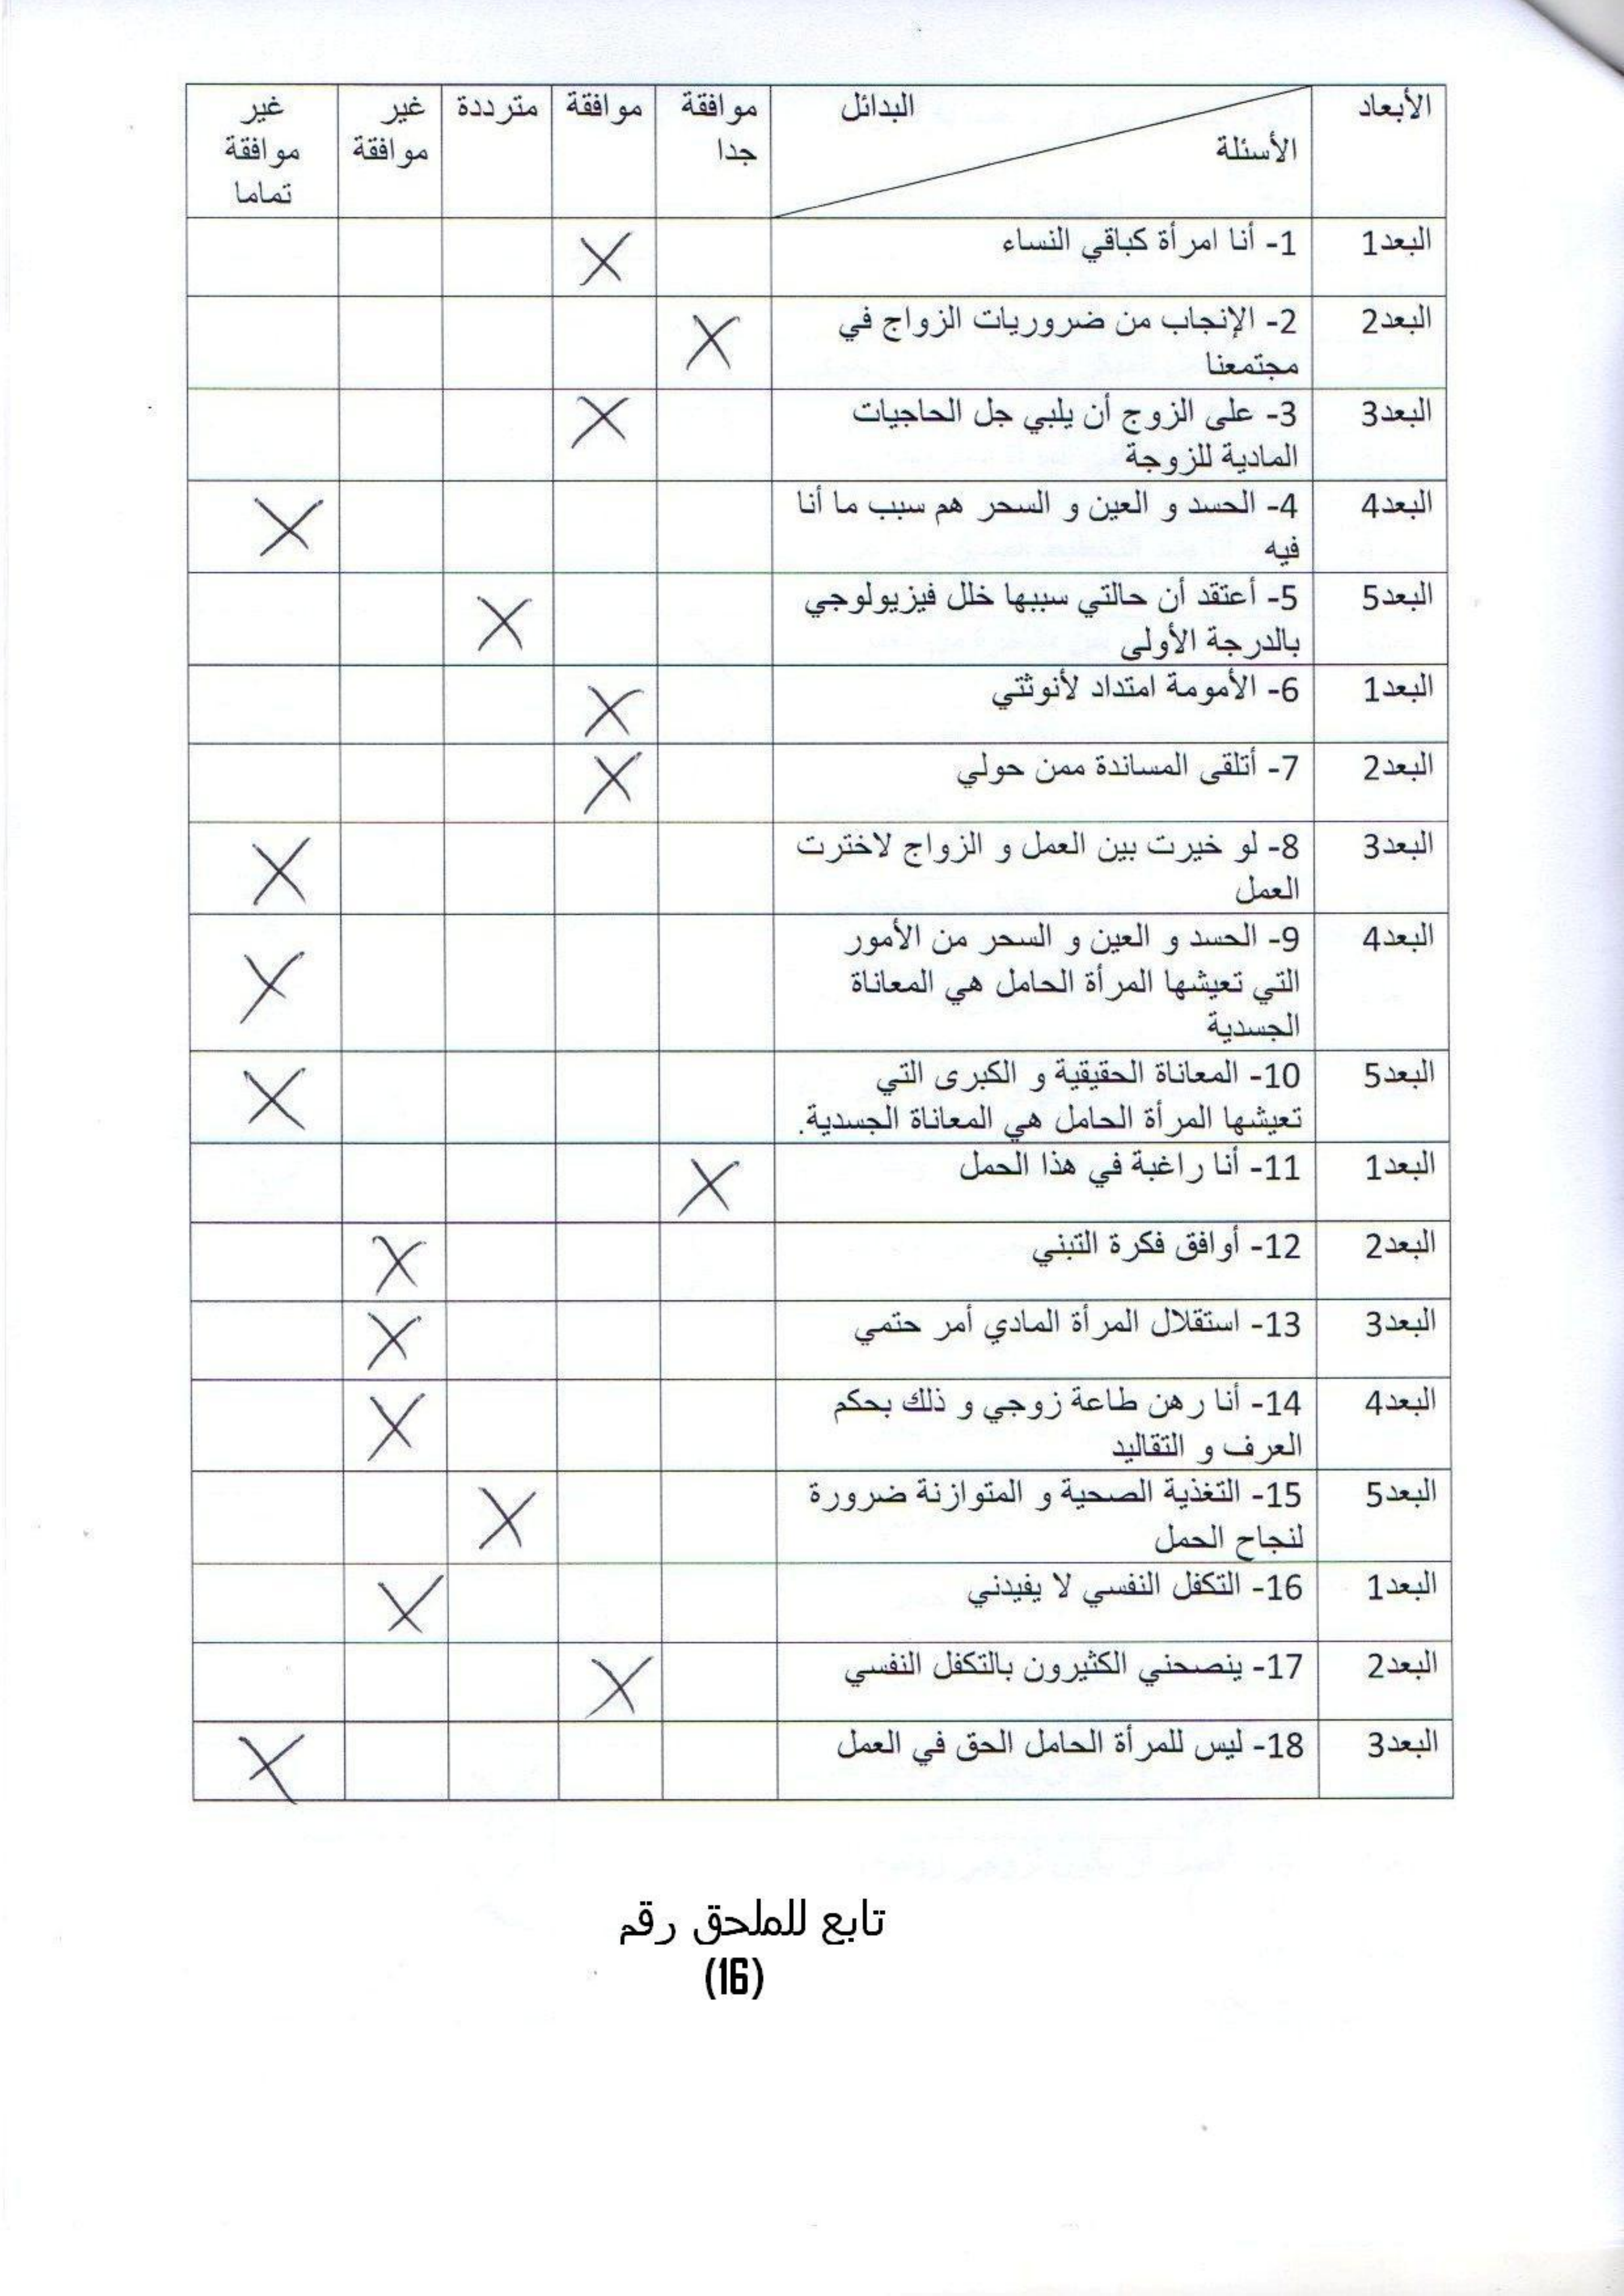 الأبعاد البدائل موافقة موافقة مترددة غير غير
الأسئلة جدا موافقة موافقة
تماما
البعد1 1- أنا امرأة كباقي النساء X
البعد2 2- الإنجاب من ضروريات الزواج في X
مجتمعنا
البعد3 3- على الزوج أن يلبي جل الحاجيات X
المادية للزوجة
البعد4 4- الحسد و العين و السحر هم سبب ما أنا X
فيه
البعد5 5- أعتقد أن حالتي سببها خلل فيزيولوجي X
بالدرجة الأولى
البعد1 6- الأمومة امتداد لأنوثتي X
البعد2 7- أتلقى المساندة ممن حولي X
البعد3 8- لو خيرت بين العمل و الزواج لاخترت X
العمل
البعد4 9- الحسد و العين و السحر من الأمور X
التي تعيشها المرأة الحامل هي المعاناة
الجسدية
البعد5 10- المعاناة الحقيقية و الكبرى التي X
تعيشها المرأة الحامل هي المعاناة الجسدية.
البعد1 11- أنا راغبة في هذا الحمل X
البعد2 12- أوافق فكرة التبني X
البعد3 13- استقلال المرأة المادي أمر حتمي X
البعد4 14- أنا رهن طاعة زوجي و ذلك بحكم X
العرف و التقاليد
البعد5 15- التغذية الصحية و المتوازنة ضرورة X
لنجاح الحمل
البعد1 16- التكفل النفسي لا يفيدني X
البعد2 17- ينصحني الكثيرون بالتكفل النفسي X
البعد3 18- ليس للمرأة الحامل الحق في العمل X
تابع للملحق رقم
(16)